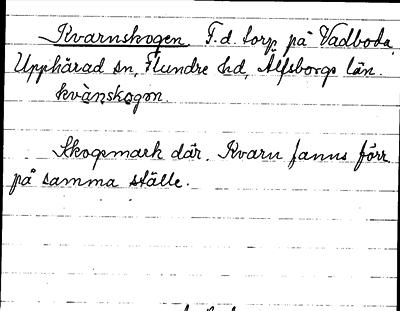 Kvarnskogen. F.d. torp på Vadboda,
Upphärad sn, Flundre hd, Älfsborgs län.
kvànskogɷn.
Skogsmark där. Kvarn fanns förr
på samma ställe.